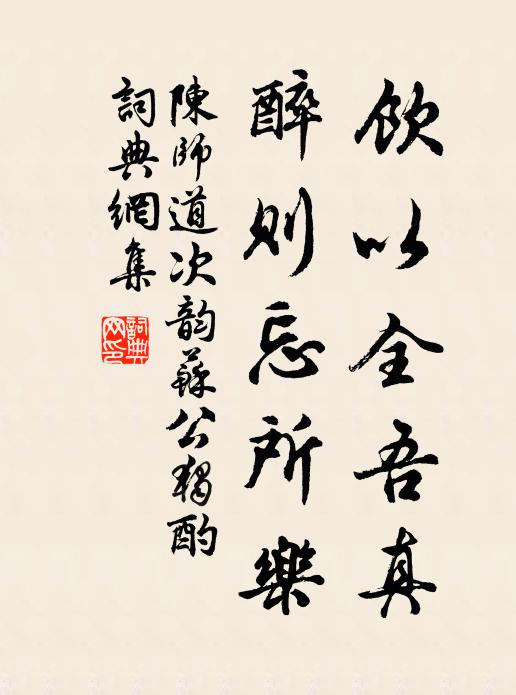 飲以全吾真
醉則忘所樂
陳師道次韵蘇公獨酌
詞典網集
詞典网印